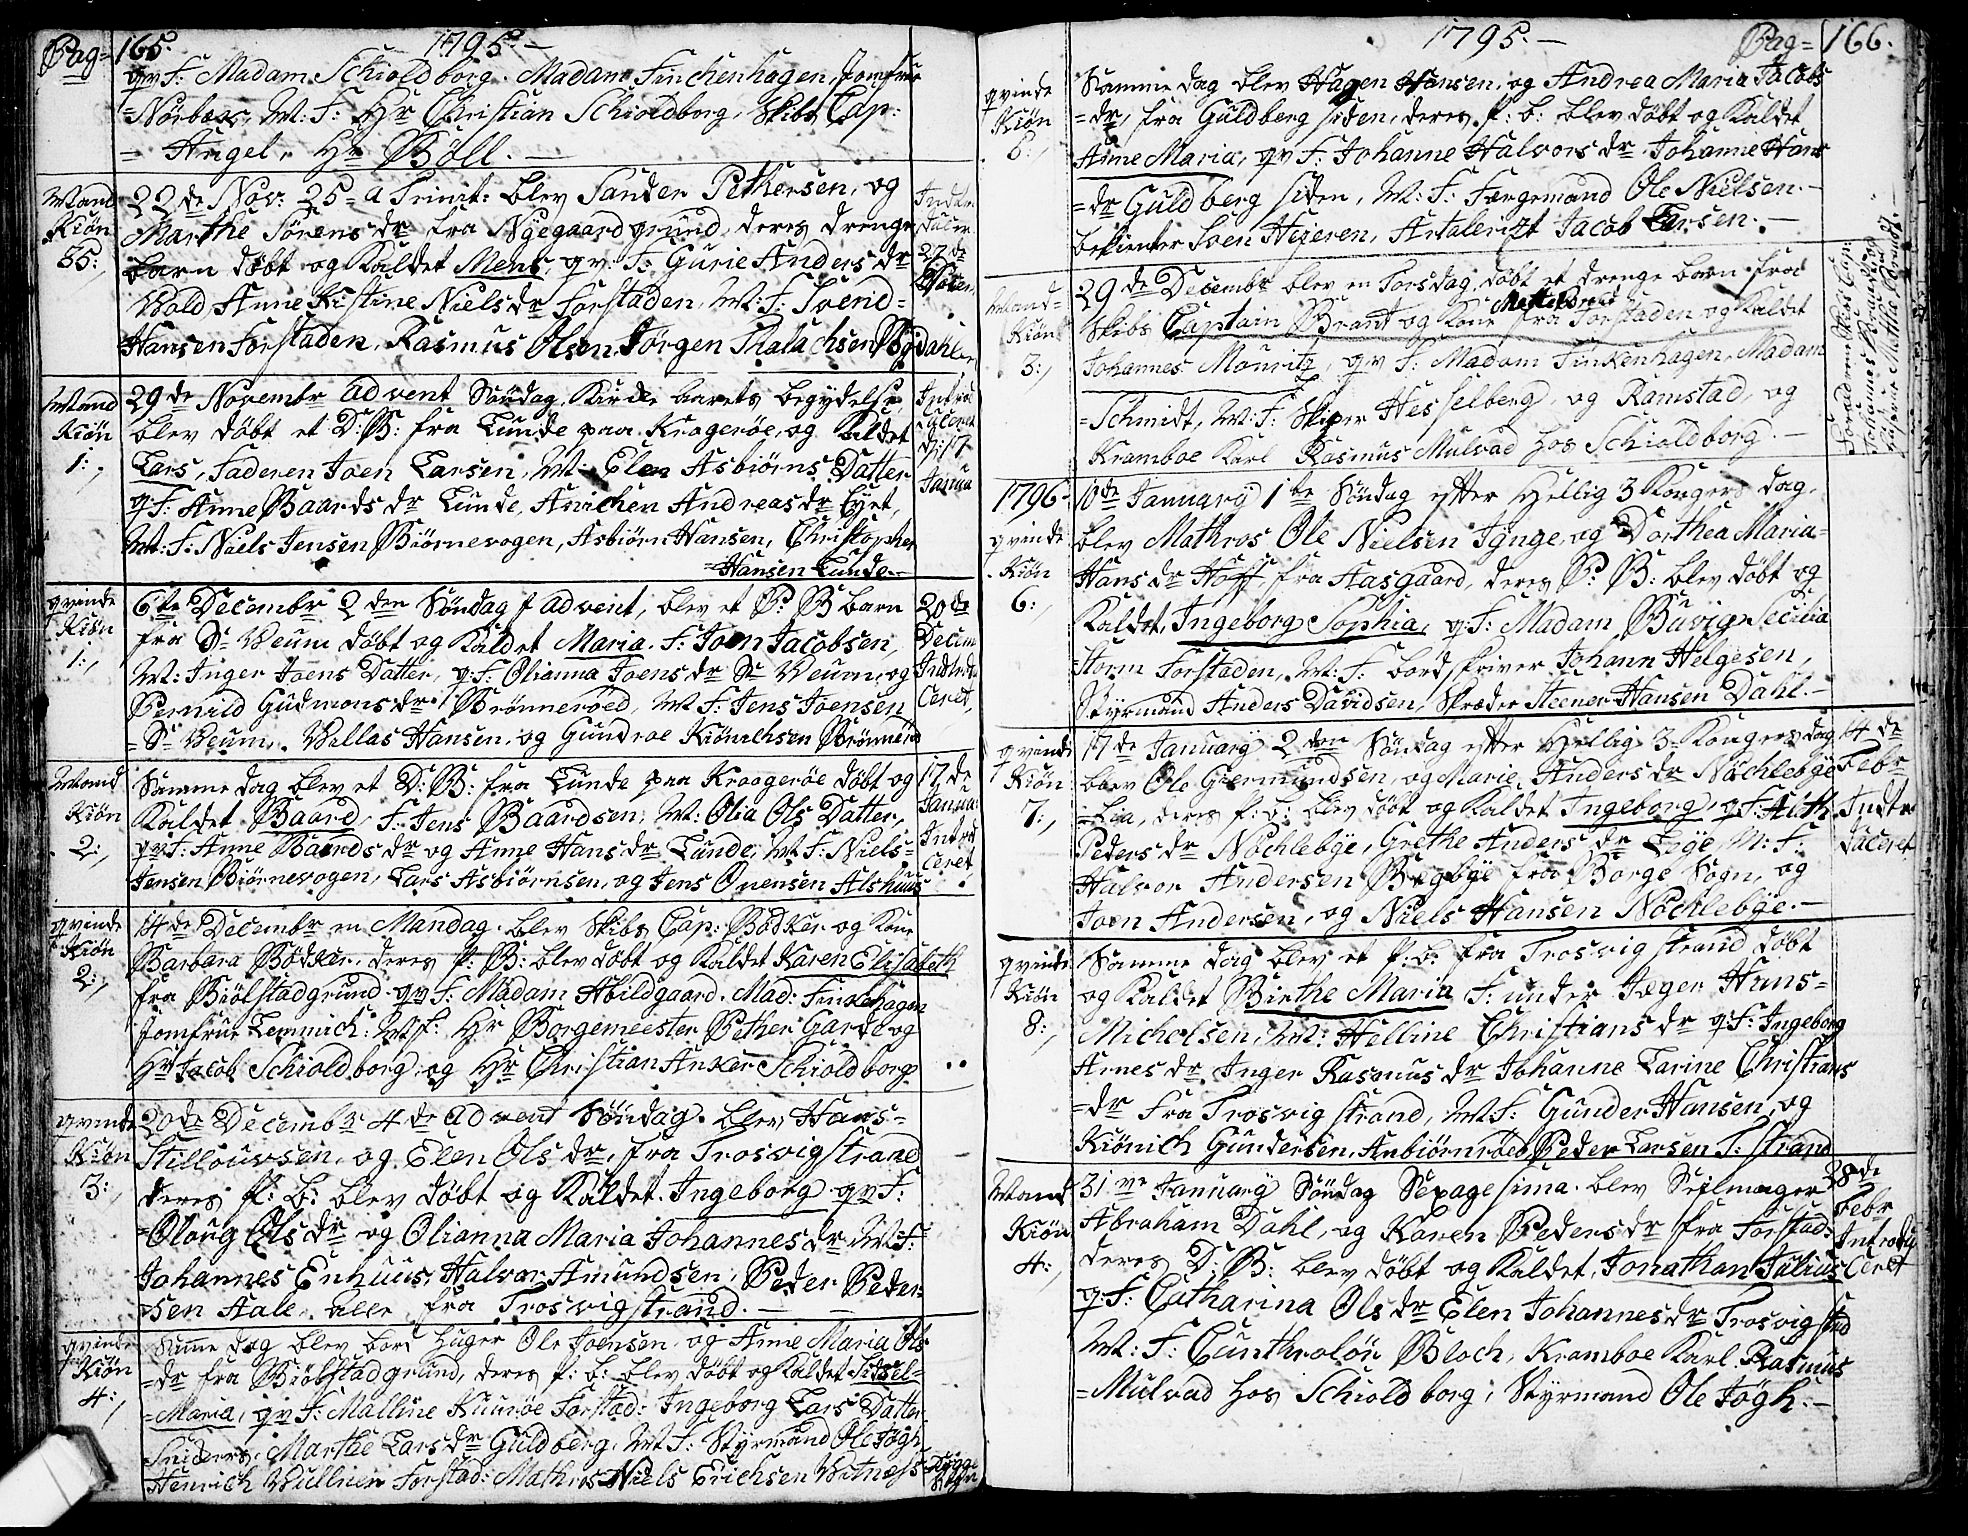 Pag= 165. 1795.-
qv F: Madam Schioldborg. Madam Finchenhagen, Jomfrue
=Nørboes, M: F: Hr Christian Schioldborg, Skibs Cap:
= Angel, Hr Bøll.-
Mand Kiøn 35:,
22de Nov: 25= a Trinit: blev Sander Pethersen, og
Marthe Sørens dr fra Nÿegaard grund, deres drenge
barn døbt og kaldet Mens, qv: F: Gurie Anders dr
Wold Anne Kistine Niels dr forstaden. M: F: Svend=
Hansen Forstaden, Rasmus Olsen, Jørgen
27 de
Mand Kiøn 1:,
29de Novembr advent Søndag, Kirke aarets begÿdelse,
blev døbt et D: B: fra Lunde paa Kragerøe, og kaldet
Lars, Faderen Joen Larsen, M: Elen Asbiørns Datter
q: F: Anne Baards dr Lunde, Anichen Andreas dr
M: F: Niels Jensen Biørnevogen, Asbiørn Hansen, Christopher
=Hansen Lunde.-
17
Janua
qvinde Kiøn 1:,
6te Decembr 2den Søndag f advent, blev et P: B barn
fra Sr Veum døbt og kaldet Maria. F: Joen Jacobsen,
M: Inger Joens Datter, q: F: Olianna Joens dr Sr Veum, og
Pernild Gudmons dr Brønnerøed, M F: Jens Joensen
= Sr Veum, Wellas Hansen, og Gundroe Kiønichsen
20de
Decem
Introdu
Ceret,
Mand Kiøn 2:,
Samme dag blev et D: B: fra Lunde paa Kraagerøe døbt og
Kaldet Baard, F: Jens Baardsen, M: Olia Ols Datter,
qv F: Anne Baards dr og Anne Hans dr Lunde, M F: Niels=
Jensen Biørnevogen, Lars Asbiørnsen, og Jens Ovensen Alshuus
17 de
Janua:
Introd
Ceret
qvinde Kiøn 2:,
14de Decembr en Mandag blev Skibs Cap: Bødker og Kone
Barbara Bødker, deres P: B: blev døbt og kaldet Karen Elisabeth
fra Biølstadgrund qv F: Madam Abildgaard. Mad: Finckehagen
Jomfrue Lemmich: M F: Hr Borgemeester Pether Garde og
Hr Jacob Schioldborg, og Hr Christian Anker Schioldborg
qvinde Kiøn 3:,
20de Decembr 4de advent Søndag. blev Hans=
Stillouvsen, og Elen Ols dr, fra Trosvig strand
deres P: B: blev døbt og kaldet Ingeborg qv F:
=Oloug Ols dr og Olianna Maria Johannes dr M: F:
Johannes Enhuus, Halvor Amundsen, Peder Peder=
=sen Aale, alle fra Trosvig strand.-
qvinde Kiøn 4:,
Samme dag blev bord Huger Ole Joensen, og Anne Maria Ols
=dr fra Biølstadgrund, deres P: b: blev døbt og kaldet Sidsel=
=Maria, qv F: Malline Kuurøe Forstad: Ingeborg Lars Datter
Sniders, Marthe Lars dr Guldberg, M F: Styrmand Ole Fogh
Henrich Wullner Forstad: Mathros Niels Erichsen
1795.- Pag= 166.
qvinde Kiøn 5:,
Samme dag blev Hagen Hansen, og Andrea Maria Jacobs
=dr, fra Guldberg siden, deres P: b: blev døbt og kaldet
Anne Maria, qv F: Johanne Halvors dr Johanne Hans
=dr Guldberg siden, M: F: Færgemand Ole Nielsen.-
betienter Sven Hezeren, Jacob Larsen.-
Mand= Kiøn 3:,
29de Decembr blev en Torsdag døbt et drenge barn fra
Skibs Captain Brant og Kone fra Forstaden og kaldet
Johannes Mouritz, qv F: Madam Finkenhagen, Madam
=Schmidt, M: F: Skiper Hesselberg, og Ramstad, og
Kramboe Karl Rasmus Mulvad hos Schioldborg.-
1796. qvinde Kiøn 6:,
10de Januarÿ 1te Søndag efter Hellig 3 Kongers dag,
blev Mathros Ole Nielsen Tÿnge, og Dorthea Maria=
Hans dr Hoff, fra Aasgaard, deres P: B: blev døbt og
kaldet, Ingeborg Sophia, q: F: Madam Buvig, Secilia
Storm Forstaden, M: F: bordskriver Johann Helgesen,
Stÿrmand Anders Davidsen, Skræder Steener Hansen Dahl.-
qvinde Kiøn 7:,
17de Januarÿ 2den Søndag efter Hellig 3 Kongers dag
blev Ole Giermundsen, og Marie Anders dr Nøchlebÿe
=Lia, deres P: b: blev døbt og kaldet Ingeborg, q F:
Peders dr Nøchlebÿe, Grethe Anders dr Løÿe, M: F:
Halvor Andersen Begbÿe fra Borge Sogn, og
Joen Andersen, og Niels Hansen Nøchlebÿe.-
14 de
Febr
Indtro
duceret
qvinde Kiøn 8:,
Samme dag blev et P: b: fra Trosvig strand døbt
og kaldet Birthe Maria F: under Jæger Hans=
Michelsen, M: Helline Christians dr q: F: Ingeborg
Arnes dr Inger Rasmus dr Johanne Larine Christians
=dr fra Trosvig strand, M F: Gunder Hansen, og
Kiønich Gundersen, Anbiørnrøed, Peder Larsen T: strand
Mand Kiøn 4:,
31me Januarÿ Søndag Sexagesima blev Seilmager
Abraham Dahl, og Karen Peders dr fra Forstad:
deres D: B: blev døbt og kaldet, Jonathan Julius
q: F: Catharina Ols dr Elen Johannes dr Trosvig strand
M: F: Bloch, Kramboe Karl Rasmus
=Mulvad hos Schioldborg, Stÿrmand Ole Fogh.-
28de
Febr
Introdu
Ceret